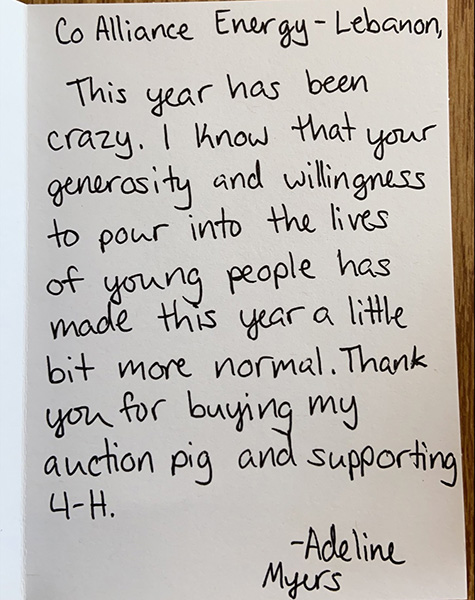 Co Alliance Energy - Lebanon,
This year has been
crazy. I know that your
generosity and willingness
to pour into the lives
of young people has
made this year a little
bit more normal. Thank
you for buying my
auction pig and supporting
4-H.
-Adeline
Myers